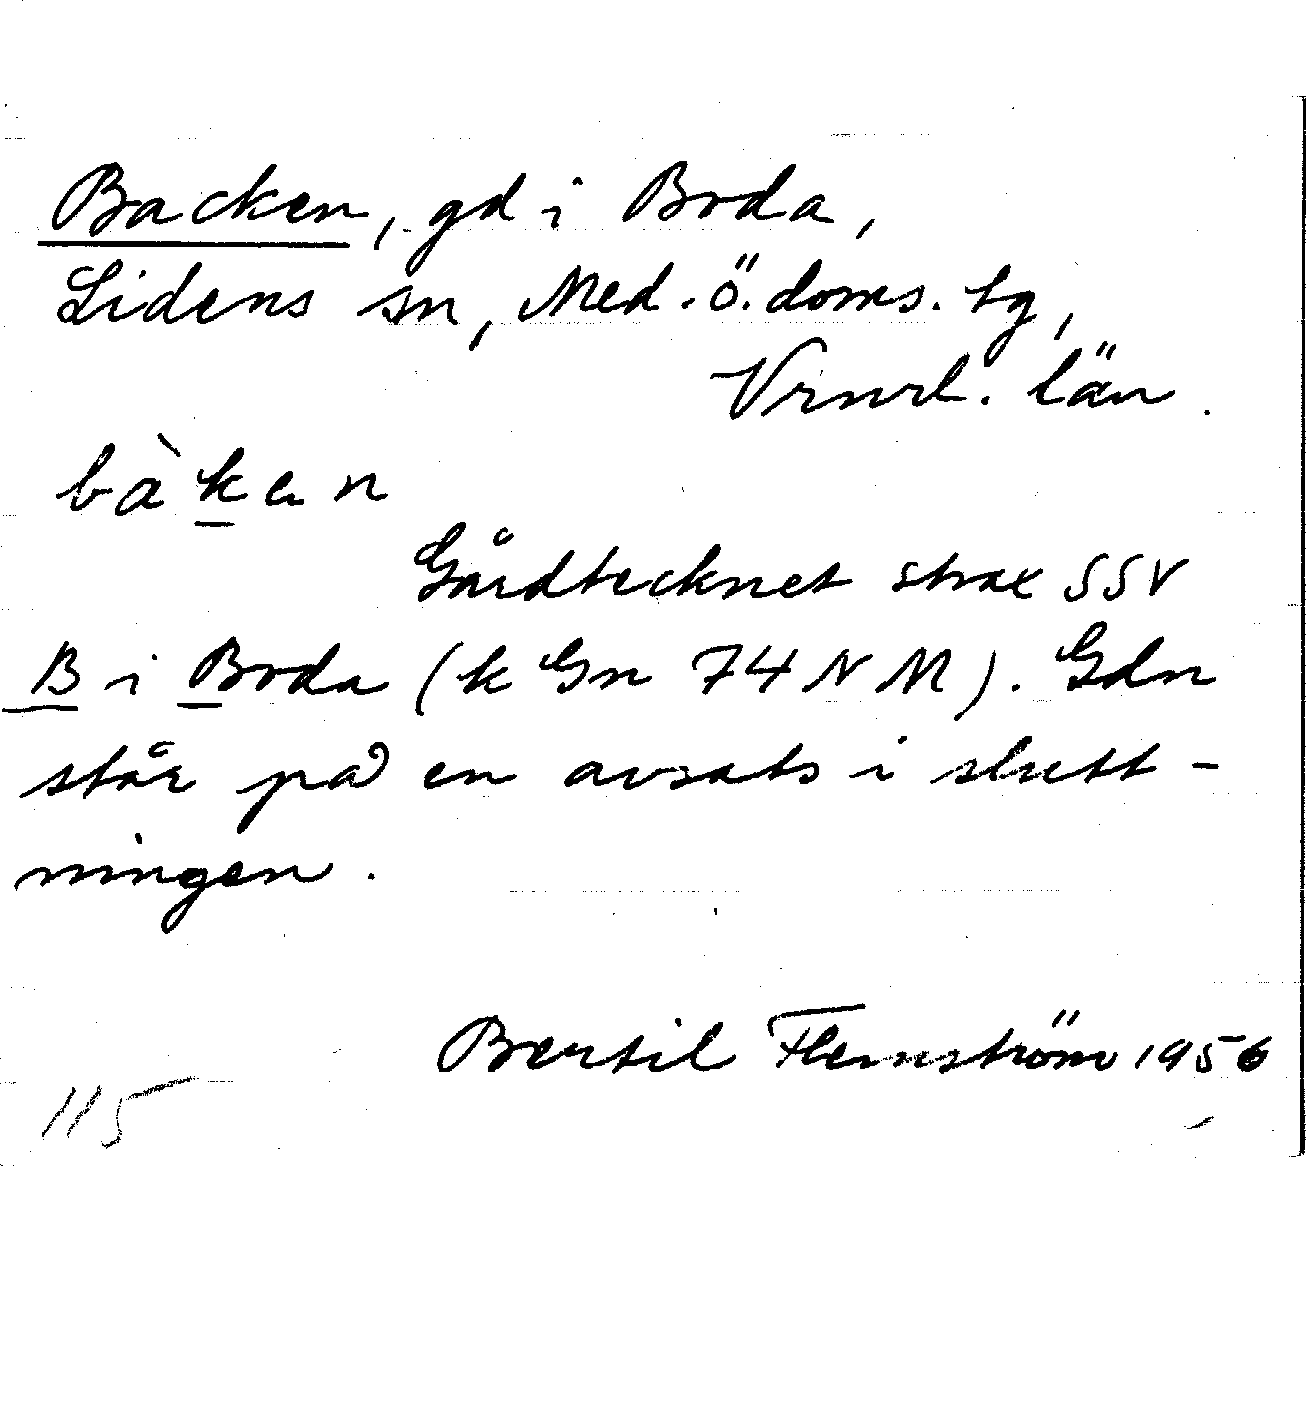 Backen, gd i Boda,
Lidens sn, Med. Ö. doms. tg,
Vrnrl. län.
bàkan
Gårdtecknet strax SSV
B i Boda (k Gn 74 NM). Gdn
står på en avsats i slutt-
ningen.
Bertil Flemström 1956
115